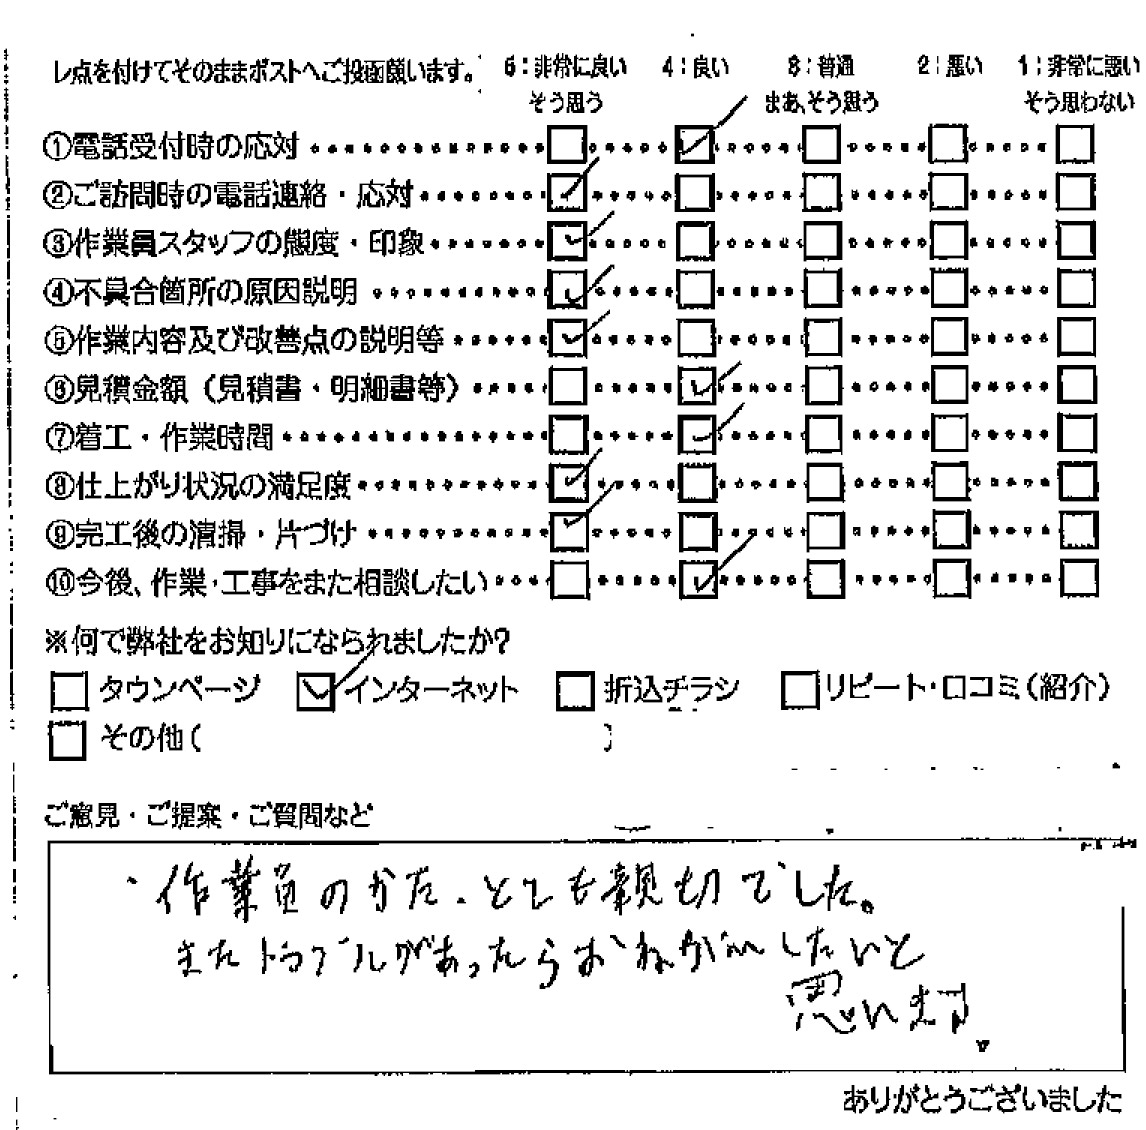 レ点を付けてそのままポストへご投函願います。 5:非常に良い 4:良い 3:普通 2:悪い 1:非常に悪い
そう思う まあ、そう思う そう思わない
①電話受付時の応対
②ご訪問時の電話連絡・応対
③作業員スタッフの態度・印象
④不具合箇所の原因説明
⑤作業内容及び改善点の説明等
⑥見積金額（見積書・明細書等）
⑦着工・作業時間
⑧仕上がり状況の満足度
⑨完工後の清掃・片づけ
⑩今後、作業・工事をまた相談したい
※何で弊社をお知りになられましたか?
タウンページ インターネット 折込チラシ リピート・口コミ(紹介)
その他( )
ご意見・ご提案・ご質問など
・作業員のかた、とても親切でした。
またトラブルがあったらおねがいしたいと
思います。
ありがとうございました